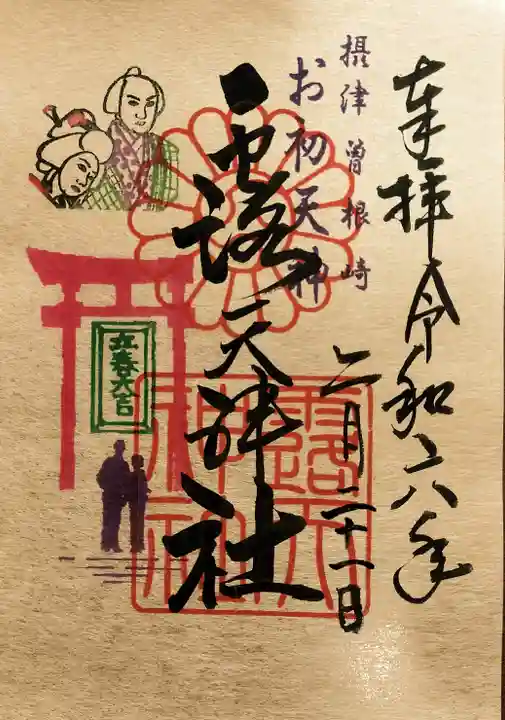 奉拝 令和六年
二月二十一日
摂津曽根崎
お初天神
露天神社
立春大吉
露天神社